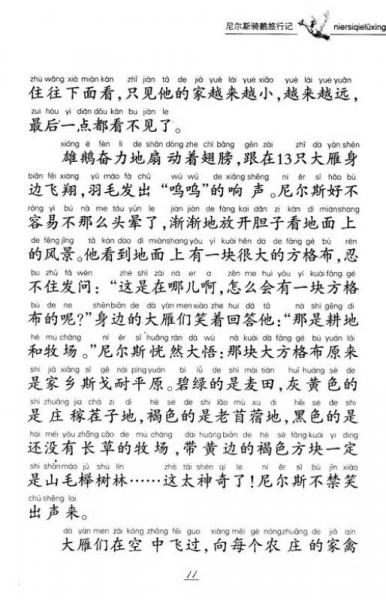 尼尔斯骑鹅旅行记 niersiqielüxing
zhù wǎng xià miàn kàn zhǐ jiàn tā de jiā yuè lái yuè xiǎo yuè lái yuè yuǎn
住往下面看，只见他的家越来越小，越来越远，
zuì hòu yì diǎn dōu kàn bu jiàn le
最后一点都看不见了。
xióng é fèn lì de shān dòng zhe chì bǎng gēn zài zhī dà yàn shēn
雄鹅奋力地扇动着翅膀，跟在13只大雁身
biān fēi xiáng yǔ máo fā chū wū wū de xiǎng shēng ní ěr sī hǎo bù
边飞翔，羽毛发出“呜呜”的响声。尼尔斯好不
róng yì bú nà me tóu yūn le jiàn jiàn de fàng kāi dǎn zi kàn dì miànshang
容易不那么头晕了，渐渐地放开胆子看地面上
de fēngjǐng tā kàn dào dì miànshang yǒu yí kuài hěn dà de fāng gé bù rěn
的风景。他看到地面上有一块很大的方格布，忍
bu zhù fā wèn zhè shì zài nǎ er a zěn me huì yǒu yí kuàifāng gé
不住发问：“这是在哪儿啊，怎么会有一块方格
bù de ne shēnbiān de dà yàn menxiào zhe huí dá tā nà shì gēng dì
布的呢？”身边的大雁们笑着回答他：“那是耕地
hé mù chǎng ní ěr sī huǎng rán dà wù nà kuài dà fāng gé bù yuán lái
和牧场。”尼尔斯恍然大悟：那块大方格布原来
shì jiā xiāng sī gē nài píngyuán bì lǜ de shì mài tián huī huáng sè de
是家乡斯戈耐平原。碧绿的是麦田，灰黄色的
shì zhuāng jia chá zi dì hè sè de shì lǎo mù xu dì hēi sè de shì
是庄稼茬子地，褐色的是老苜蓿地，黑色的是
hái méi yǒu zhǎng cǎo de mù chǎng dài huángbiān de hè sè fāng kuài yí dìng
还没有长草的牧场，带黄边的褐色方块一定
shì shānmáo jǔ shù lín zhè tài shén qí le ní ěr sī bù jīn xiào
是山毛榉树林……这太神奇了！尼尔斯不禁笑
chū shēng lai
出声来。
dà yàn men zài kōng zhōng fēi guò xiàng měi gè nóngzhuāng de jiā qín
大雁们在空中飞过，向每个农庄的家禽
11